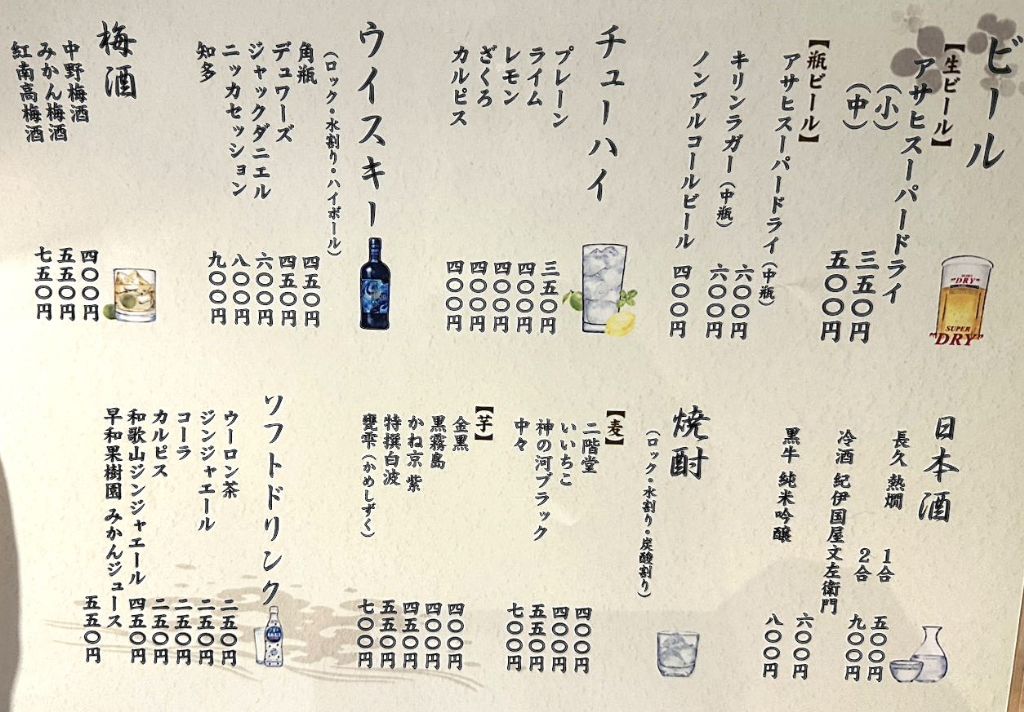 ビール
【生ビール】
アサヒスーパードライ
（小） 三五〇円
（中） 五〇〇円
【瓶ビール】
アサヒスーパードライ（中瓶） 六〇〇円
キリンラガー（中瓶） 六〇〇円
ノンアルコールビール 四〇〇円
"DRY"
SUPER
"DRY"
チューハイ
プレーン 三五〇円
ライム 四〇〇円
レモン 四〇〇円
ざくろ 四〇〇円
カルピス 四〇〇円
ウイスキー
（ロック・水割り・ハイボール）
角瓶 四五〇円
デュワーズ 四五〇円
ジャックダニエル 六〇〇円
ニッカセッション 八〇〇円
知多 九〇〇円
梅酒
中野梅酒 四〇〇円
みかん梅酒 五五〇円
紅南高梅酒 七五〇円
日本酒
長久 熱燗 1合 五〇〇円
2合 九〇〇円
冷酒 紀伊国屋文左衛門 六〇〇円
黒牛 純米吟醸 八〇〇円
焼酎
（ロック・水割り・炭酸割り）
【麦】
二階堂 四〇〇円
いいちこ 四〇〇円
神の河ブラック 五五〇円
中々 七〇〇円
【芋】
金黒 四〇〇円
黒霧島 四〇〇円
かね京 紫 四五〇円
特撰白波 五五〇円
甕雫（かめしずく） 七〇〇円
ソフトドリンク
ウーロン茶 二五〇円
ジンジャエール 二五〇円
コーラ 二五〇円
カルピス 二五〇円
和歌山ジンジャエール 四五〇円
早和果樹園 みかんジュース 五五〇円